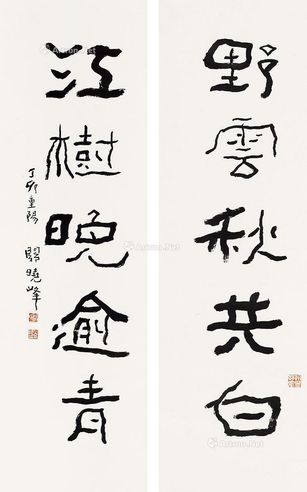 野雲秋共白
江樹晚逾青
丁卯重陽 關曉峰